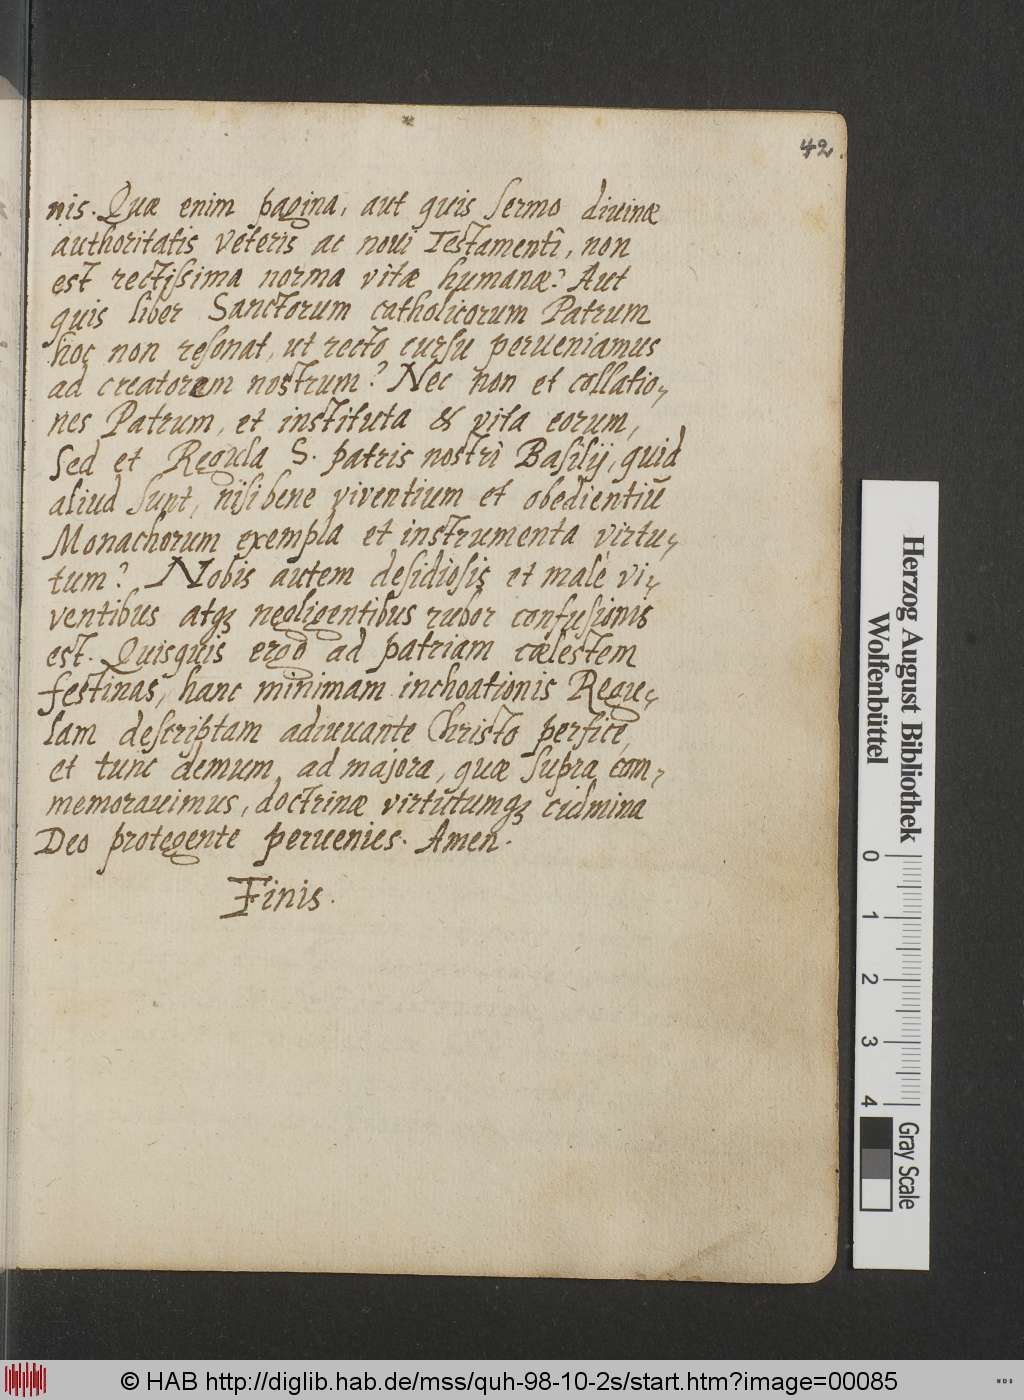 42.
nis. Quæ enim pagina, aut quis sermo diuinæ
authoritatis veteris ac noui Testamenti, non
est rectissima norma vitæ humanæ? Aut
quis liber Sanctorum catholicorum Patrum
hoc non resonat, ut recto cursu perueniamus
ad creatorem nostrum? Nec non et collatio-
nes Patrum, et instituta & vita eorum,
sed et Regula S. patris nostri Basilij, quid
aliud sunt, nisi bene viventium et obedientiū
Monachorum exempla et instrumenta virtu-
tum? Nobis autem desidiosis et malè vi-
ventibus atqꝫ negligentibus rubor confusionis
est. Quisquis ergo ad patriam cælestem
festinas, hanc minimam inchoationis Regu-
lam descriptam adiuuante Christo perfice,
et tunc demum ad majora, quæ supra com-
memorauimus, doctrinæ virtutumqꝫ culmina
Deo protegente peruenies. Amen.
Finis.
Herzog August Bibliothek
Wolfenbüttel
0 1 2 3 4
Gray Scale
© HAB http://diglib.hab.de/mss/quh-98-10-2s/start.htm?image=00085